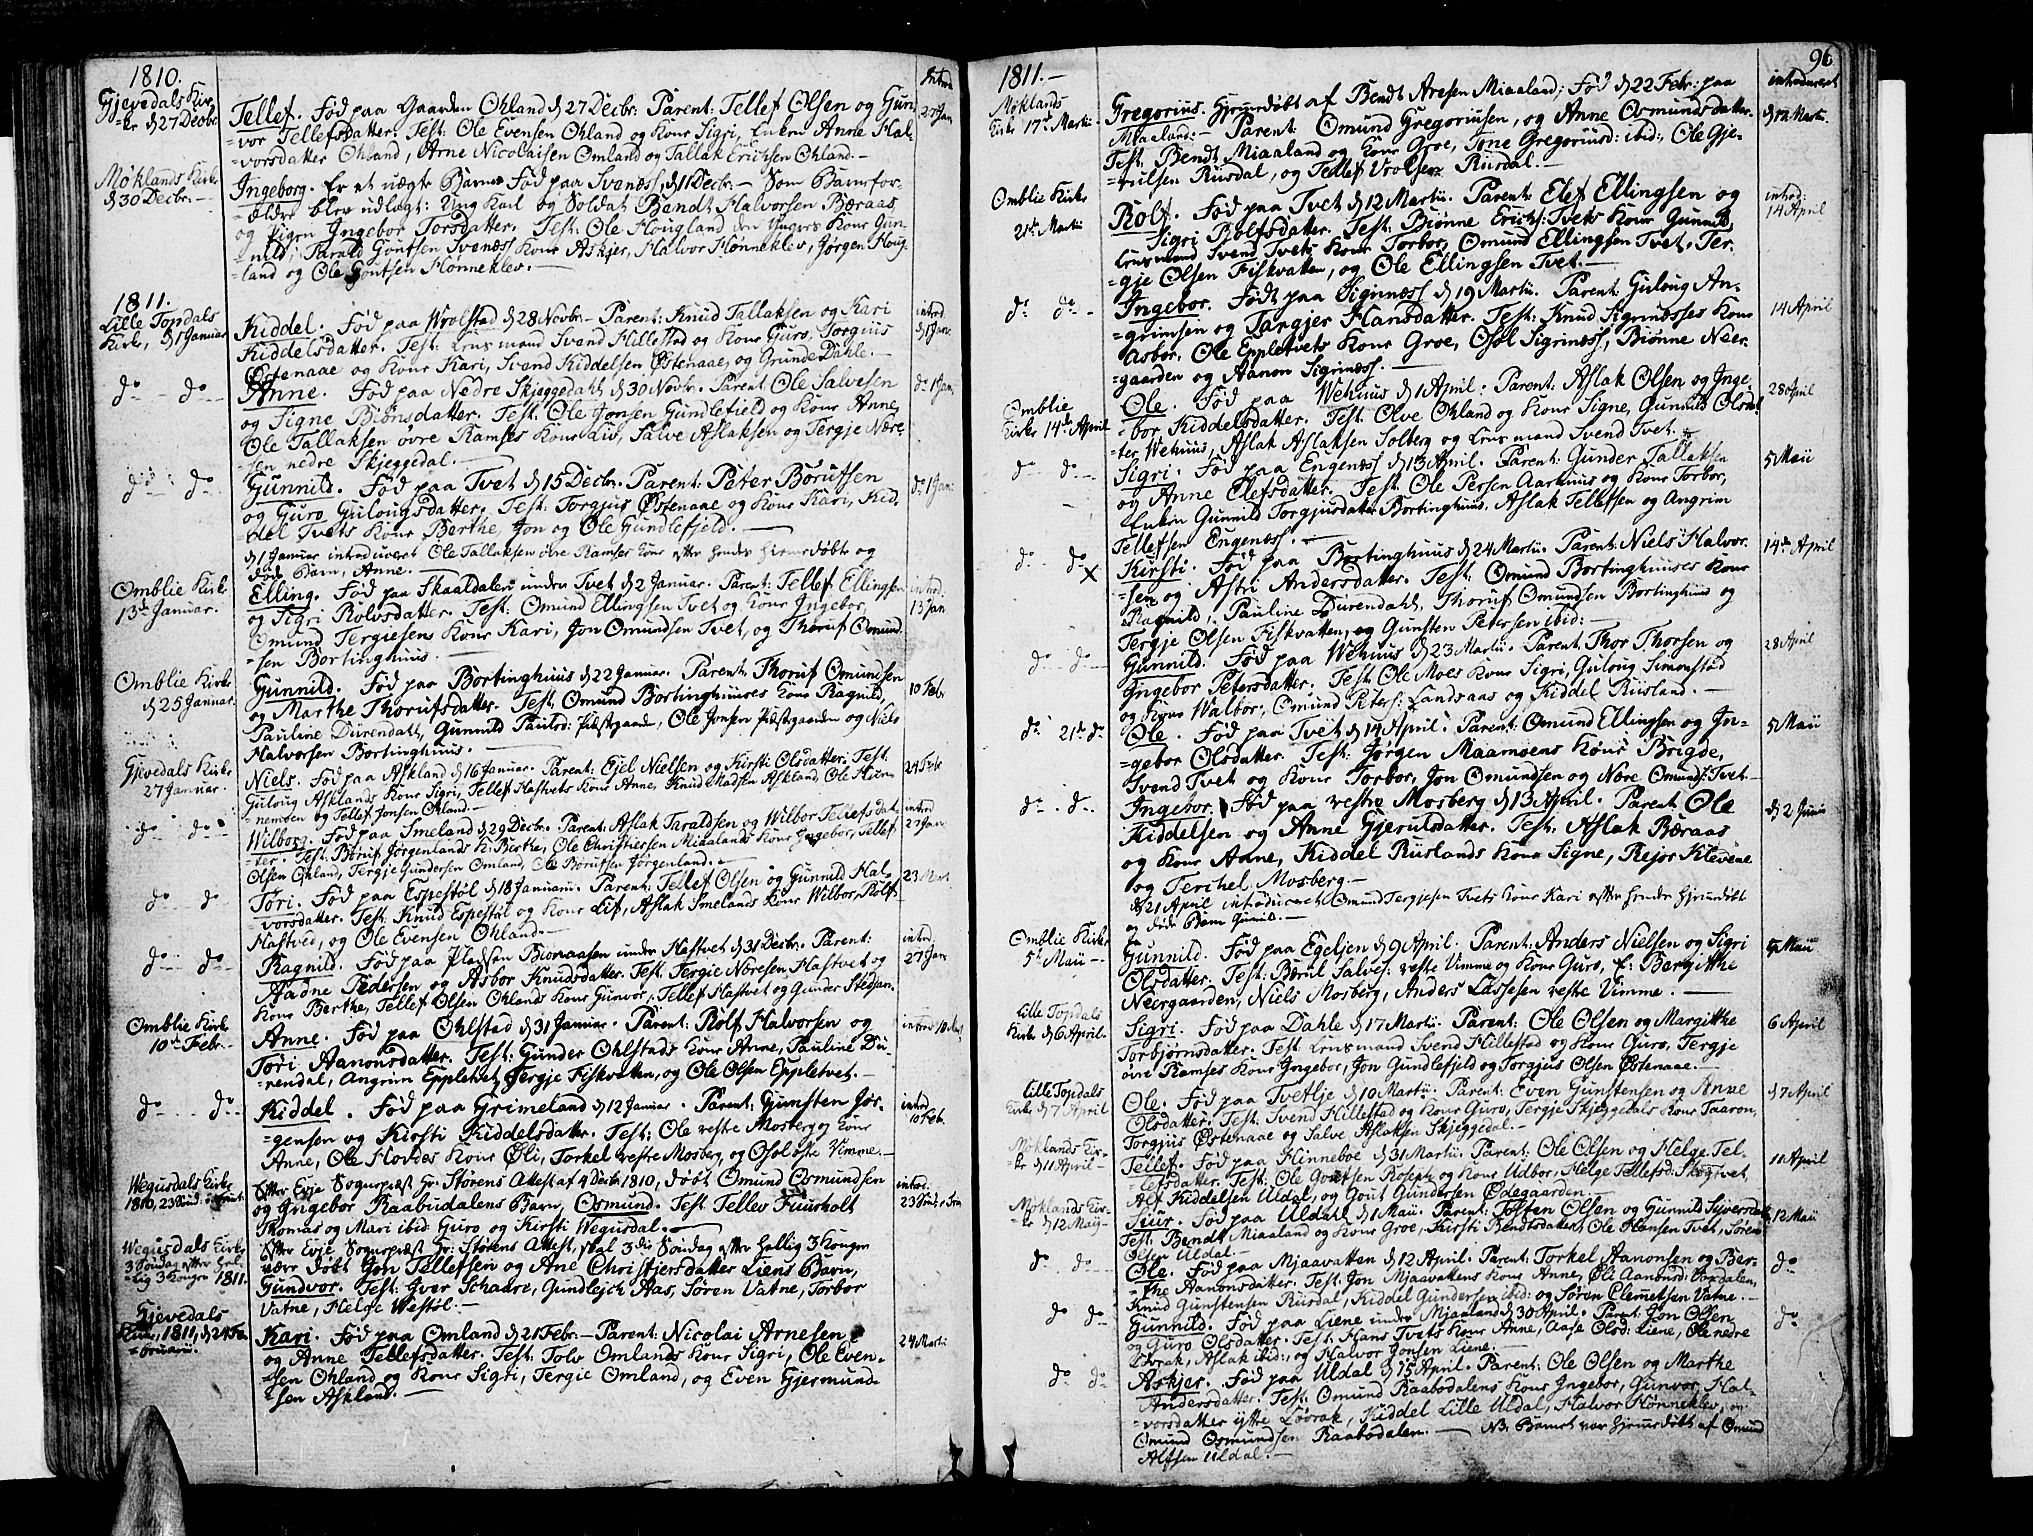 1810.
Gjevedals Kir-
=ke d 27 Decbr.
Introd
27 Jan
Tellef. Fød paa Gaarden Ohland d 27 Decbr. Parent: Tellef Olsen og Gun-
=vor Tellefsdatter. Test: Ole Evensen Ohland og Kone Sigri, Enken Anne Hal-
=vorsdatter Ohland, Arne Nicolaisen Omland og Tallak Erichsen Ohland.—
Møklands Kirke
d 30 Decbr.—
Ingeborg. Er et uægte Barn. Fød paa Svenæss d 11 Decbr.— Som Barnefor-
=ældre blev udlagt: Ung Karl og Soldat Bendt Halvorsen Beraas
og Pigen Ingebor Torsdatter. Test: Ole Hougland den Yngres Kone Gun-
=nild, Tarald Goutsen Svenæss Kone Askjer, Halvor Hønneklev, Jørgen Houg-
=land og Ole Goutsen Hønneklev.—
1811.
Lille Topdals
Kirke, d 1 Januar
introd
d 1 Jan:
Kiddel. Fød paa Wrolstad d 28 Novbr.— Parent: Knud Tallaksen og Kari
Kiddelsdatter. Test: Lensmand Svend Hillestad og Kone Guro, Torgiuus
Østenaae og Kone Kari, Svend Kiddelsen Østenaae, og Grunde Dahle.—
do — do —
do 1 Jan
Anne. Fød paa Nedre Skjeggedahl d 30 Novbr. Parent Ole Salvesen
og Signe Biørnsdatter. Test: Ole Jonsen Gundlefield og Kone Anne,
Ole Tallaksen øvre Ramses Kone Liv, Salve Aslaksen og Tergje Nere-
=sen nedre Skjeggedal.—
do — do —
do 1 Jan:
Gunnild. Fød paa Tvet d 15 Decbr. Parent: Peter Børufsen
og Guro Gulougsdatter. Test: Torgjus Østenaae og Kone Kari, Kid-
del Tvets Kone Berthe, Jon og Ole Gundlefjeld.—
d 1 Januar introduceret Ole Tallaksen øvre Ramses Kone efter hendes hjemedøbte og
døde Barn, Anne.—
Omblie Kirke
13de Januar.
introd.
13 Jan
Elling. Fød paa Skaaldalen under Tvet d 2 Januar. Parent: Tellef Ellingsen
og Sigri Rolvsdatter. Test: Omund Ellingsen Tvet og Kone Ingebor,
Omund Tergiesens Kone Kari, Jon Omundsen Tvet, og Thoruf Omund-
=sen Bortinghuus.
Omblie Kirke
d 25 Januar.
10 Febr
Gunnild. Fød paa Bortinghuus d 22 Januar. Parent: Thoruf Omundsen
og Marthe Thorufsdatter. Test: Omund Bortinghuuses Kone Ragnild,
Pauline Durendahl, Gunnild Paulsd: Præstgaarden, Ole Jonsen Præstgaarden og Niels
Halvorsen Bortinghuus.—
Gjevedals Kirke
27 Januar.
24 Febr
Niels. Fød paa Askland d 16 Januar. Parent: Ejel Nielsen og Kirsti Olsdatter. Test:
Guloug Asklands Kone Sigri, Tellef Hastvets Kone Anne, Knud Madsen Askland, Ole Hien-
nemoen og Tellef Jonsen Ohland.—
do — do —
introd
27 Jan
Wilborg. Fød paa Smeland d 29 Decbr. Parent: Aslak Taraldsen og Wilbor Tellefsdat-
ter. Test: Børuf Jørgenlands K: Berthe, Ole Christiersen Miaalands Kone Ingebor, Tellef
Olsen Ohland, Tergie Gundersen Omland, Ole Børufsen Jørgenland.—
do — do
23 Mart
Tori. Fød paa Espestøl d 18 Januarii. Parent: Tellef Olsen og Gunnild Hal-
vorsdatter. Test: Knud Espestøl og Kone Lif, Aslak Smelands Kone Wilbor, Rolf
Hastved, og Ole Evensen Ohland.—
do — do —
introd
27 Jan
Ragnild. Fød paa Pladsen Bionaasen under Hastvet d 31 Decbr. Parent:
Aadne Pedersen og Asbor Knudsdatter. Test: Tergie Noresen Hastvet og
Kone Berthe, Tellef Olsen Ohlands Kone Gunvor, Tellef Hastvet og Gunder Stedjan.
Omblie Kirke
10de Febr.—
introd 10 Febr
Anne. Fød paa Ohlstad d 31 Januar. Parent: Rolf Halvorsen og
Tori Aanonsdatter. Test: Gunder Ohlstads Kone Anne, Pauline Du-
=rendal, Angrim Eppletvet, Tergje Fiskvatten, og Ole Olsen Eppletvet.—
do — do —
introd
10 Feb.
Kiddel. Fød paa Grimeland d 12 Januar. Parent: Gunsten Jør-
=gensen og Kirsti Kiddelsdatter. Test: Ole vestre Mosberg og Kone
Anne, Ole Hovdes Kone Øli, Torkel vestre Mosberg, og Osol østre Vimme.—
Wegusdals Kirke
1810, 23 Sønd: e: Trinit.
introd.
23 Sønd e Trin
Efter Evje Sognepræst Hr: Størens Attest af 4 Decbr 1810, døbt Omund Osmundsen
og Ingebor Raabudalens Barn, Osmund. Test: Tellev Fuurholt
Thomas og Mari ibid: Guro og Kirsti Wegusdal.—
Wegusdals Kirke
3 Søndag efter Hel-
lig 3 Konger 1811.
Efter Evje Sognepræst Hr: Størens Attest, skal 3die Søndag efter hellig 3 Konger
være døbt Jon Tellefsen og Ane Christjersdatter Liens Barn,
Gundvor. Test: Iver Schaare, Gundlejch Aas, Søren Vatne, Torbor
Vatne, Helge Westøl.—
Gjevedals
Kirke, 1811, d 24 Fe-
=bruarii.
24 Martii
Kari. Fød paa Omland d 21 Febr.— Parent: Nicolai Arnesen
og Anne Tellefsdatter. Test: Tolv Omlands Kone Sigri, Ole Even-
=sen Ohland og Kone Sigri, Tergie Omland, og Even Gjermund-
=sen Askland.—
96
1811.—
Møklands
Kirke 17de Martii
introduceret
d 17 Martii.
Gregorius. Hjemedøbt af Bendt Aresen Miaaland; Fød d 22 Febr: paa
Miaaland:— Parent: Omund Gregoriusen, og Anne Osmundsdatter.
Test: Bendt Miaaland og Kone Groe, Tone Gregoriusd: ibid:, Ole Gje-
=rulsen Riisdal, og Tellef Vrolsen Riisdal.—
Omblie Kirke
21de Martii
introd:
14 April
Rolf. Fød paa Tvet d 12 Martii. Parent: Elef Ellingsen og
Sigri Rolfsdatter. Test: Biønne Erichs: Tvets Kone Gunnild,
Lensmand Svend Tvets Kone Torbor, Omund Ellingsen Tvet, Ter-
=gje Olsen Fiskvatten, og Ole Ellingsen Tvet.—
do do —
14 April
Ingebor. Født paa Sigrinæss d 19 Martii. Parent: Guloug An-
=grimsen og Targjer Hansdatter. Test: Knud Sigrinæsses Kone
Asbor, Ole Eppletvets Kone Groe, Osol Sigrinæss, Biønne Neer-
=gaarden og Aanon Sigrinæss.—
Omblie
Kirke 14de April
28 April
Ole. Fød paa Wehuus d 1 April. Parent: Aslak Olsen og Inge-
=bor Kiddelsdatter. Test: Olve Ohland og Kone Signe, Gunnild Olsdat-
ter Wehuus, Aslak Aslaksen Solberg og Lensmand Svend Tvet.
do do —
5 Maii
Sigri. Fød paa Engenæss d 13 April. Parent: Gunder Tallaksen
og Anne Elefsdatter. Test: Ole Persen Aarhuus og Kone Torbor,
Enken Gunnild Torgjusdatter Bortinghuus, Aslak Tellefsen og Angrim
Tellefsen Engenæs.—
do do X
14de April
Kirsti. Fød paa Bortinghuus d 24 Martii. Parent: Niels Halvor-
=sen og Astri Andersdatter. Test: Omund Bortinghuuses Kone
Ragnild, Pauline Durendahl, Thoruf Omundsen Bortinghuus og
Tergje Olsen Fiskvatten, og Gunsten Petersen ibid:—
do do —
28 April
Gunnild. Fød paa Wehuus d 23 Martii. Parent: Thor Thorsen og
Ingebor Petersdatter. Test: Ole Moes Kone Sigri, Guloug Simonstad
og Kone Walbor, Omund Peters: Landsaas og Kiddel Riisland.—
do 21de do
5 Maii
Ole. Fød paa Tvet d 14 April. Parent: Omund Ellingsen og In-
=gebor Olsdatter. Test: Jørgen Maamoens Kone Brigde,
Svend Tvet og Kone Torbor, Jon Omundsen og Nere Omunds: Tvet—
do . do —
d 2 Junii
Ingebor. Fød paa vestre Mosberg d 13 April. Parent: Ole
Kiddelsen og Anne Gjerulsdatter. Test: Aslak Beraas
og Kone Anne, Kiddel Riislands Kone Signe, Rejer Klevene
og Terchel Mosberg.—
d 21 April introduceret Omund Tergjesen Tvets Kone Kari efter hendes hjemedøbt
og døde Barn Gunild.—
Omblie Kirke
5te Maii —
5 Maii
Gunnild. Fød paa Egeljen d 9 April. Parent: Anders Nielsen og Sigri
Olsdatter. Test: Berul Salves: vestre Vimme og Kone Guro, E: Bergitthe
Neergaarden, Niels Mosberg, Anders Lassesen vestre Vimme.—
Lille Topdals
Kirke d 6 April.
6 April
Sigri. Fød paa Dahle d 17 Martii. Parent: Ole Olsen og Margitthe
Torbjørnsdatter. Test: Lensmand Svend Hillestad og Kone Guro, Tergje
øvre Ramses Kone Ingebor, Jon Gundlefjeld og Torgjus Olsen Østenaae.—
Lille Topdals
Kirke d 7 April
d 7 April
Ole. Fød paa Tvetlje d 10 Martii. Parent: Even Gunstensen og Anne
Olsdatter. Test: Svend Hillestad og Kone Guro, Tergje Skjeggedals Kone Taaron,
Torgjus Østenaae og Salve Aslaksen Skjeggedal.—
Møklands Kir-
ke d 11 April—
11 April
Tellef. Fød paa Hinneboe d 31 Martii. Parent: Ole Olsen og Helge Tel-
lefsdatter. Test: Ole Goutsen Rosepte og Kone Udbor, Helge Tellefsd: Skorgetvet,
Alf Kiddelsen Uldal, og Gout Gundersen Ødegaarden.
Møklands Kir-
=ke d 12 Maii—
12 Maii
Siur. Fød paa Uldahl d 1 Maii. Parent: Tosten Olsen og Gunnild Syversdatter.
Test: Bendt Miaaland og Kone Groe, Kirsti Bendtsdatter, Ole Hansen Tvet, Søren
Olsen Uldal.—
do do —
do
Ole. Fød paa Mjaavatten d 12 April. Parent: Torkel Aanonsen og Ber-
=the Aanonsdatter. Test: Jon Mjaavattens Kone Anne, Øli Aanonsd: Topdalen,
Knud Gunstensen Riisdal, Kiddel Gundersen ibid: og Søren Clemetsen Vatne.—
do do
do
Gunnild. Fød paa Liene under Mjaaland d 30 April. Parent: Jon Olsen
og Guro Olsdatter. Test: Hans Tvets Kone Anne, Aase Olsd: Liene, Ole nedre
Løvrak, Aslak ibid:, og Halvor Jonsen Liene.—
do do
Askjer. Fød paa Uldal d 15 April. Parent: Ole Olsen og Marthe
Andersdatter. Test: Omund Raabodalens Kone Ingebor, Gunvor Hal-
=vorsdatter yttre Løvrak, Kiddel Lille Uldal, Halvor Hønneklev, og
Omund Osmundsen Raabodalen.— NB. Barnet var hjemedøbt af Omund
Alfsen Uldal.—